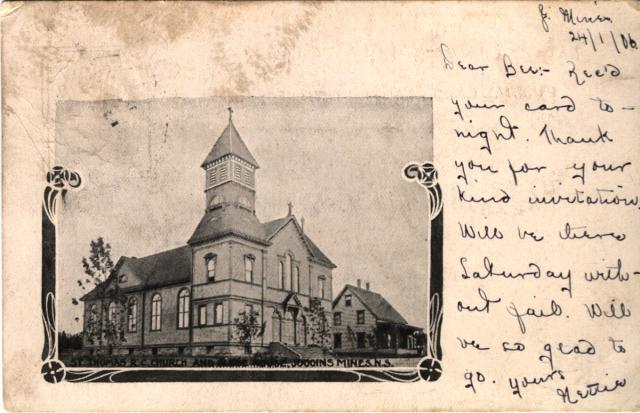 J. Mines
24/1/06
Dear Bee:- Rec'd
your card to-
night. Thank
you for your
kind invitation,
Will be there
Saturday with-
out fail. Will
be so glad to
go. yours
Nettie
ST. THOMAS R.C. CHURCH AND HOUSE, JOGGINS MINES. N.S.